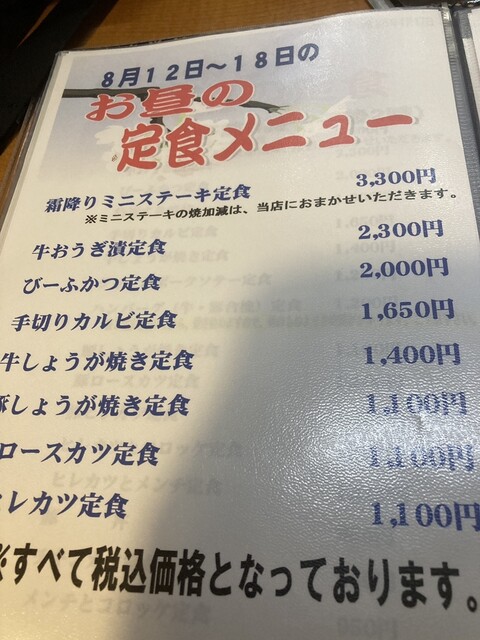 8月12日~18日の
お昼の
定食メニュー
霜降りミニステーキ定食 3,300円
※ミニステーキの焼加減は、当店におまかせいただきます。
牛おうぎ漬定食 2,300円
びーふかつ定食 2,000円
手切りカルビ定食 1,650円
牛しょうが焼き定食 1,400円
豚しょうが焼き定食 1,100円
ロースカツ定食 1,100円
ヒレカツ定食 1,100円
※すべて税込価格となっております。